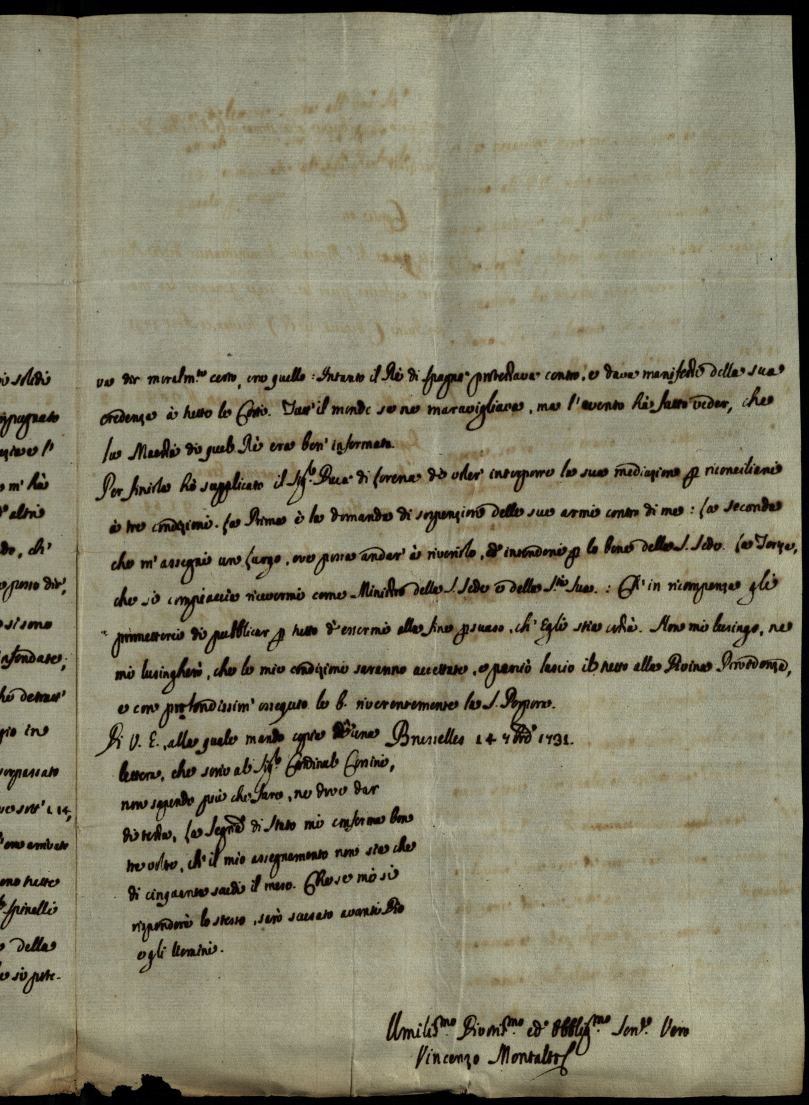 va dir moralm.te certo, era quello: Intanto il Rè di Spagna protestava contro, e dava manifesti della sua
credenza à tutte le Corti. Tutt'il mondo se ne maravigliava, ma l'evento hà fatto veder, che
la Maestà di quel Rè era ben' informata.
Per finirla hò supplicato il Sig.r Duca di Lorena di voler' interporre la sua mediazione p riconciliarci
à tre condizioni. La Prima è la domanda di sospenzione delle sue armi contro di me: La seconda
che m'assegni un luogo, ove possa andar' à riverirlo, ed' intendermi p lo bene della S. Sede. La Terza,
che si compiaccia ricevermi come Ministro della S. Sede e della S.tà Sua.: Ch'in ricompenza gli
prometterei di pubblicar p tutto d'essermi alla fine psuaso, ch'Egli stia costà. Non mi lusingo, ne
mi lusingherò, che le mie condizioni saranno accettate, e perciò lascio il tutto alla Divina Providenza,
e con profondissim' ossequio le b. riverentemente la S. Porpora.
Di V. E., alla quale mando copia d'una Brusselles 14 7bre 1731.
lettera, che scrivo al Sig.r Cardinal Corsini,
non sapendo più che fare, ne dove dar
di testa. La Segria di Stato mi conferma ben
tre volte, ch'il mio assegnamento non sia che
di cinquanta scudi il mese. Che se mi si
risponderà lo stesso, sarò scusato avanti Dio
e gli Uomini.
Umiliss.mo Divotiss.mo ed Obblig.mo Serv.re Vero
Vincenzo Montalto
ni soldi
impugnato
m' hà
d'altri
do, ch'
posso dir,
si sono
infondate,
gio in
sorpassato
ove sott' i 14,
ono tutte
Spinelli
della
si pote-